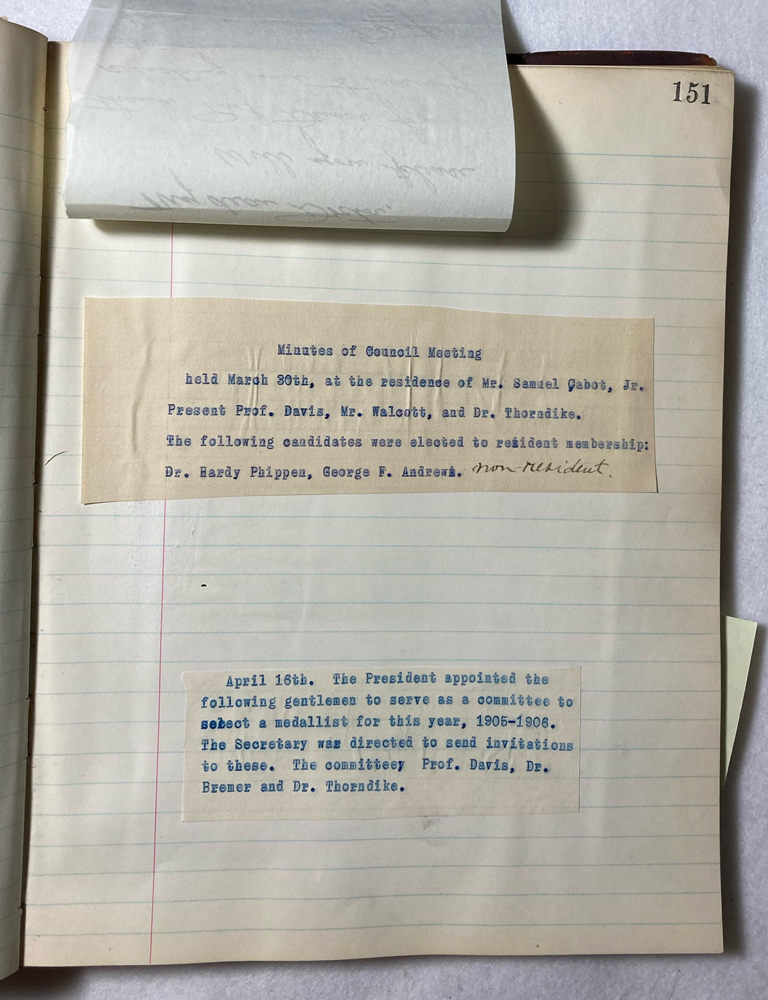 151
Minutes of Council Meeting
held March 30th, at the residence of Mr. Samuel Cabot, Jr.
Present Prof. Davis, Mr. Walcott, and Dr. Thorndike.
The following candidates were elected to resident membership:
Dr. Hardy Phippen, George F. Andrews. non-resident.
April 16th. The President appointed the
following gentlemen to serve as a committee to
select a medallist for this year, 1905-1906.
The Secretary was directed to send invitations
to these. The committee; Prof. Davis, Dr.
Bremer and Dr. Thorndike.